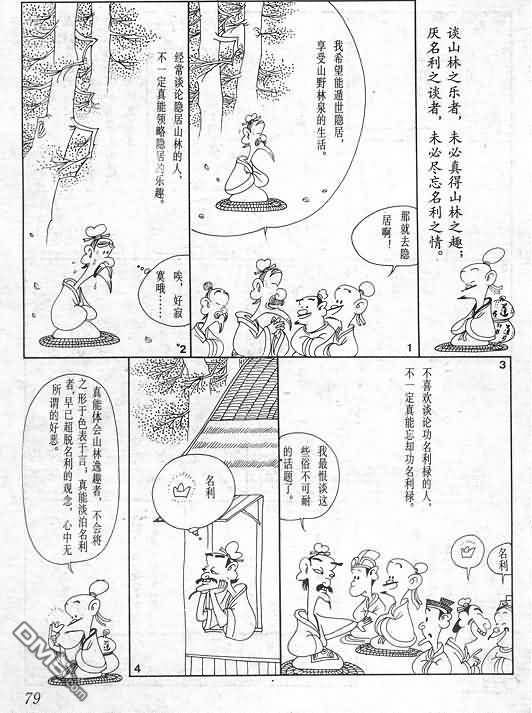 谈山林之乐者，未必真得山林之趣；
厌名利之谈者，未必尽忘名利之情。
我希望能遁世隐居，
享受山野林泉的生活。
那就去隐
居啊！
1
经常谈论隐居山林的人，
不一定真能领略隐居的乐趣。
唉，好寂
寞哦……
2
3
不喜欢谈论功名利禄的人，
不一定真能忘却功名利禄。
我最恨谈这
些俗不可耐
的话题了。
名利
名利
4
真能体会山林逸趣者，不会将
之形于色表于言；真能淡泊名利
者，早已超脱名利的观念，心中无
所谓的好恶。
79